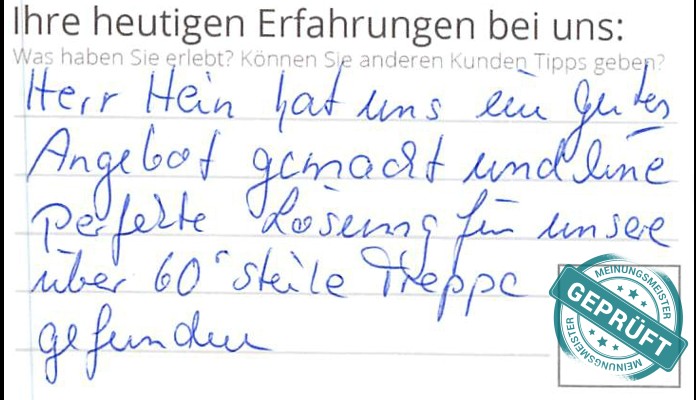 Ihre heutigen Erfahrungen bei uns:
Was haben Sie erlebt? Können Sie anderen Kunden Tipps geben?
Herr Hein hat uns ein gutes
Angebot gemacht und eine
perfekte Lösung für unsere
über 60° steile Treppe
gefunden
MEINUNGSMEISTER
GEPRÜFT
MEINUNGSMEISTER